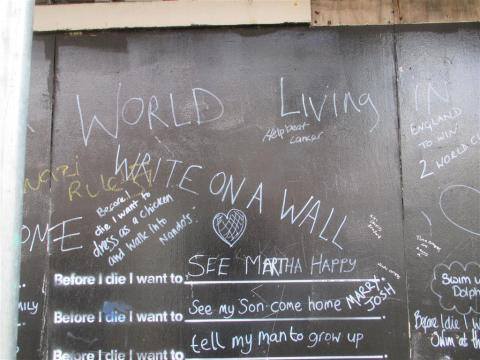 WORLD Living IN
Help beat
cancer
ENGLAND
TO WIN
2 WORLD
WRITE ON A WALL
NAZI
RULE
Before I
die I want to
dress as a chicken
and walk into
Nando's
OME
Before I die I want to SEE MARTHA HAPPY
Before I die I want to See my Son come home
MARRY
JOSH
Before I die I want to tell my man to grow up
MILY
Swim
Dolph
Before I die I w
Swim at th